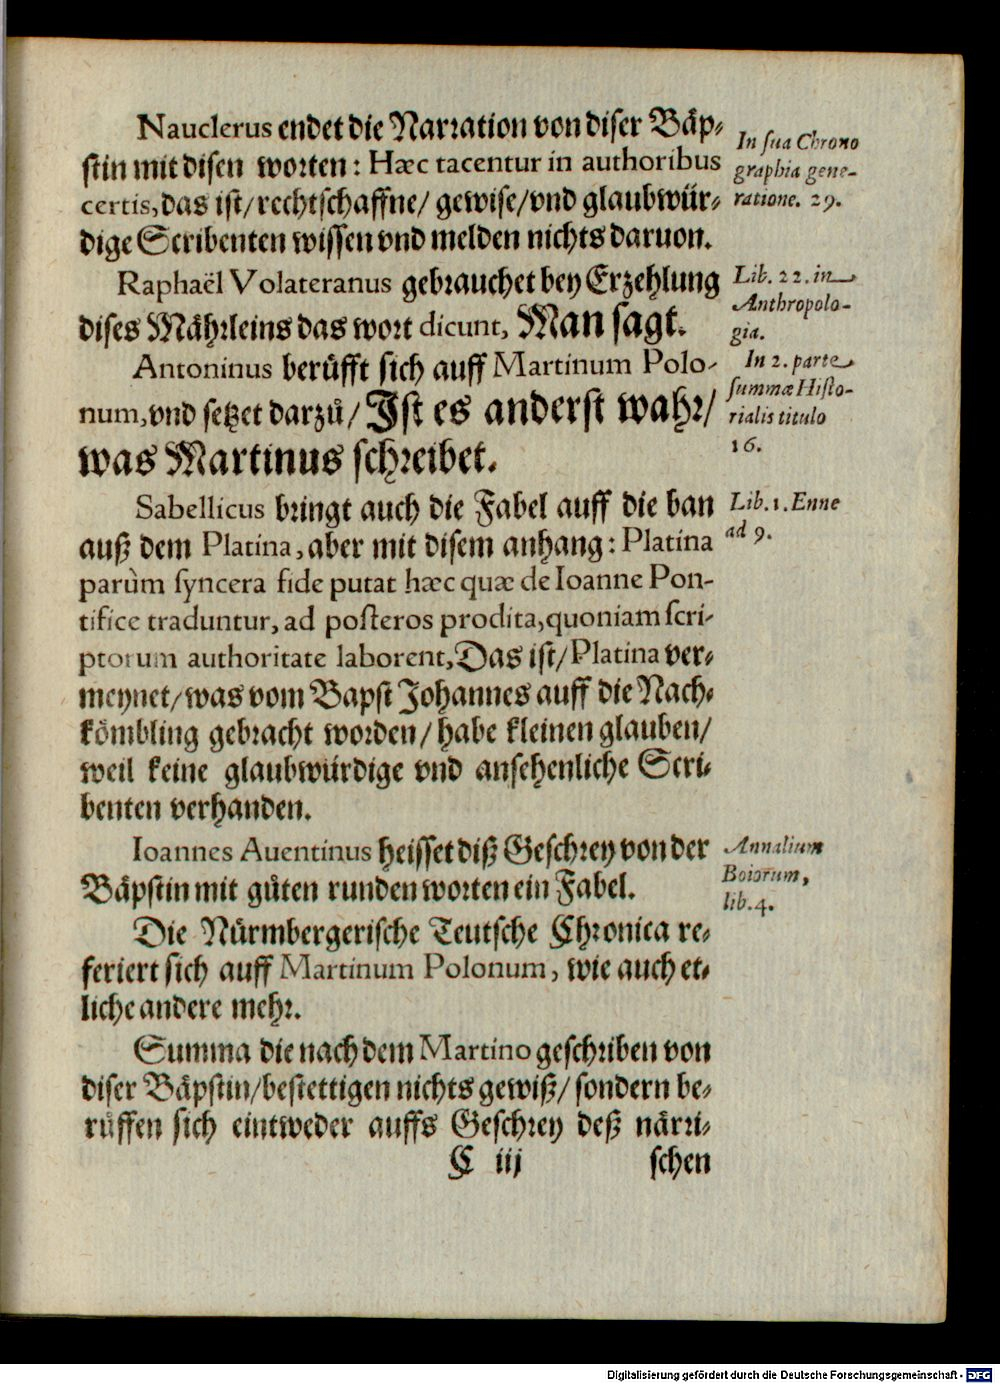 Nauclerus endet die Narration von diser Bäp-
stin mit disen worten: Hæc tacentur in authoribus
certis, das ist/ rechtschaffne/ gewise/ vnd glaubwür-
dige Scribenten wissen vnd melden nichts daruon.
In sua Chrono
graphia gene-
ratione. 29.
Raphaël Volateranus gebrauchet bey Erzehlung
dises Mährleins das wort dicunt, Man sagt.
Lib. 22. in
Anthropolo-
gia.
Antoninus berůfft sich auff Martinum Polo-
num, vnd setzet darzů/ Ist es anderst wahr/
was Martinus schreibet.
In 2. parte
summæ Histo-
rialis titulo
16.
Sabellicus bringt auch die Fabel auff die ban
auß dem Platina, aber mit disem anhang: Platina
parùm syncera fide putat hæc quæ de Ioanne Pon-
tifice traduntur, ad posteros prodita, quoniam scri-
ptorum authoritate laborent, Das ist/ Platina ver-
meynet/ was vom Bapst Johannes auff die Nach-
kömbling gebracht worden/ habe kleinen glauben/
weil keine glaubwürdige vnd ansehenliche Scri-
benten verhanden.
Lib. 1. Enne
ad 9.
Ioannes Auentinus heisset diß Geschrey von der
Bäpstin mit gůten runden worten ein Fabel.
Annalium
Boiorum,
lib. 4.
Die Nürmbergerische Teutsche Chronica re-
feriert sich auff Martinum Polonum, wie auch et-
liche andere mehr.
Summa die nach dem Martino geschriben von
diser Bäpstin/ bestettigen nichts gewiß/ sondern be-
růffen sich eintweder auffs Geschrey deß närri-
C iij schen
Digitalisierung gefördert durch die Deutsche Forschungsgemeinschaft - DFG